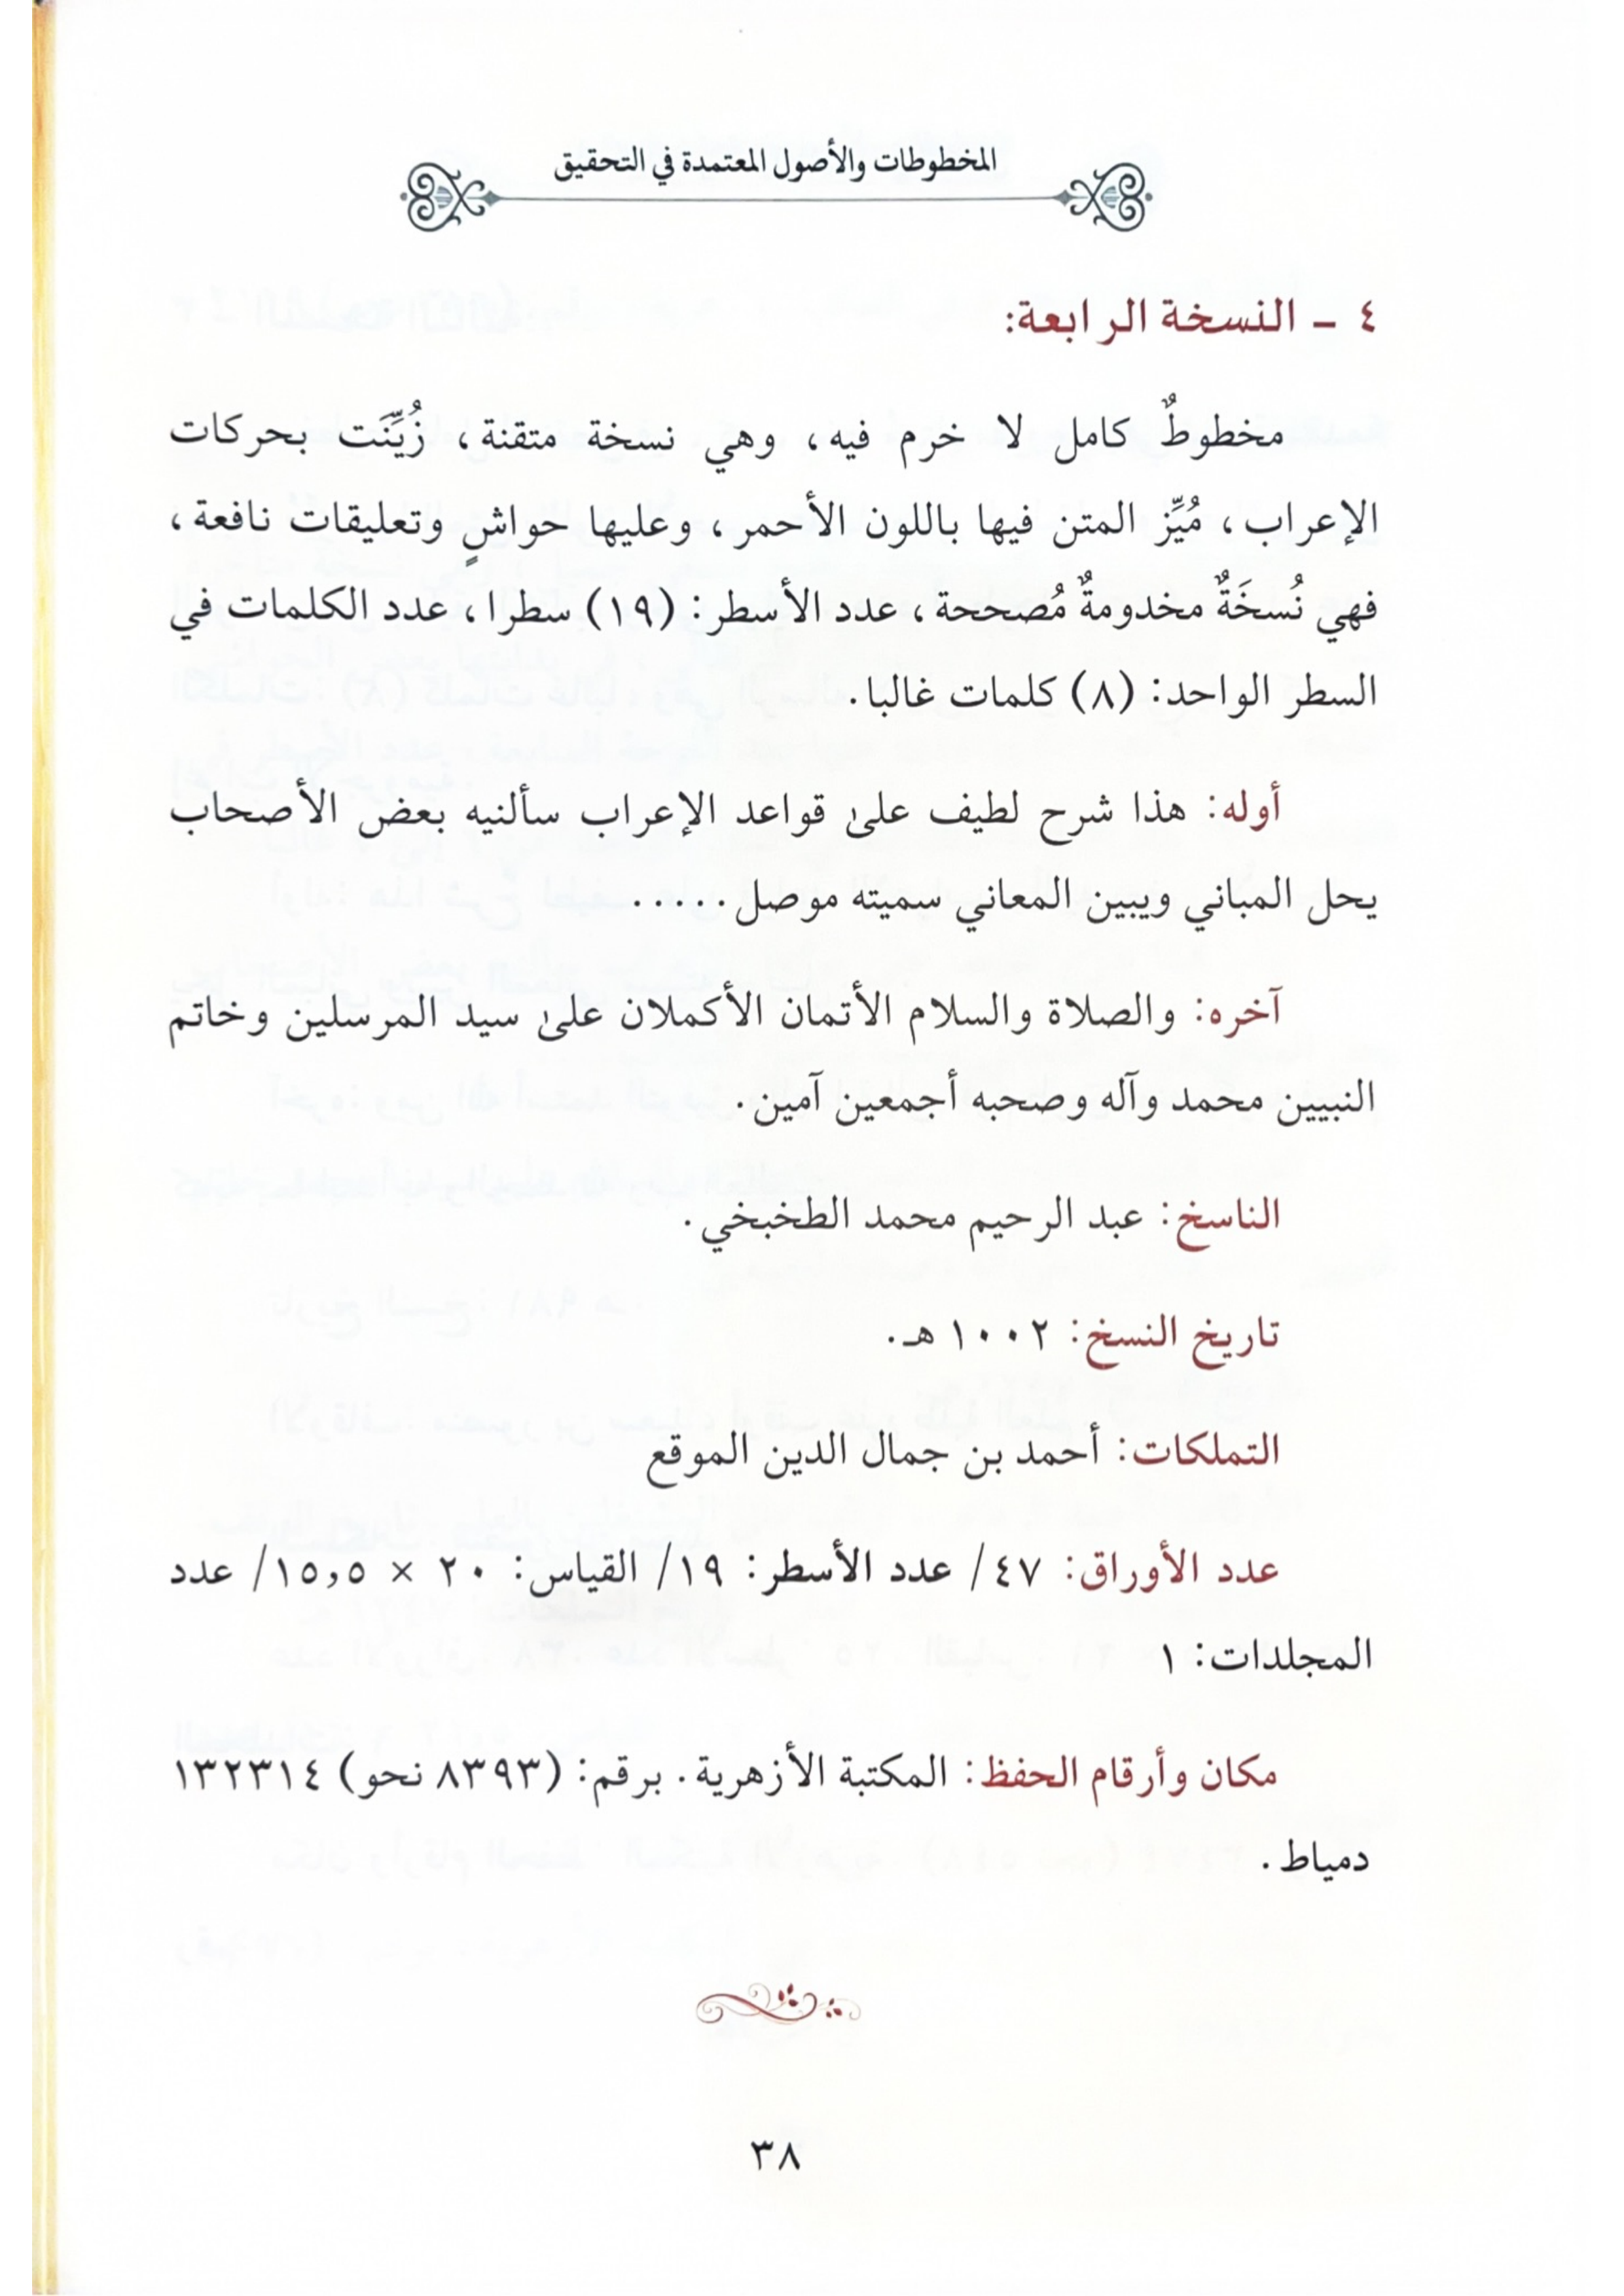 المخطوطات والأصول المعتمدة في التحقيق
٤ - النسخة الرابعة:
مخطوطٌ كامل لا خرم فيه، وهي نسخة متقنة، زُيِّنَت بحركات
الإعراب، مُيِّز المتن فيها باللون الأحمر، وعليها حواشٍ وتعليقات نافعة،
فهي نُسخَةٌ مخدومةٌ مُصححة، عدد الأسطر: (١٩) سطرا، عدد الكلمات في
السطر الواحد: (٨) كلمات غالبا.
أوله: هذا شرح لطيف على قواعد الإعراب سألنيه بعض الأصحاب
يحل المباني ويبين المعاني سميته موصل.....
آخره: والصلاة والسلام الأتمان الأكملان على سيد المرسلين وخاتم
النبيين محمد وآله وصحبه أجمعين آمين.
الناسخ: عبد الرحيم محمد الطخبخي.
تاريخ النسخ: ١٠٠٢ هـ.
التملكات: أحمد بن جمال الدين الموقع
عدد الأوراق: ٤٧/ عدد الأسطر: ١٩/ القياس: ٢٠ × ١٥,٥/ عدد
المجلدات: ١
مكان وأرقام الحفظ: المكتبة الأزهرية. برقم: (٨٣٩٣ نحو) ١٣٢٣١٤
دمياط.
٣٨